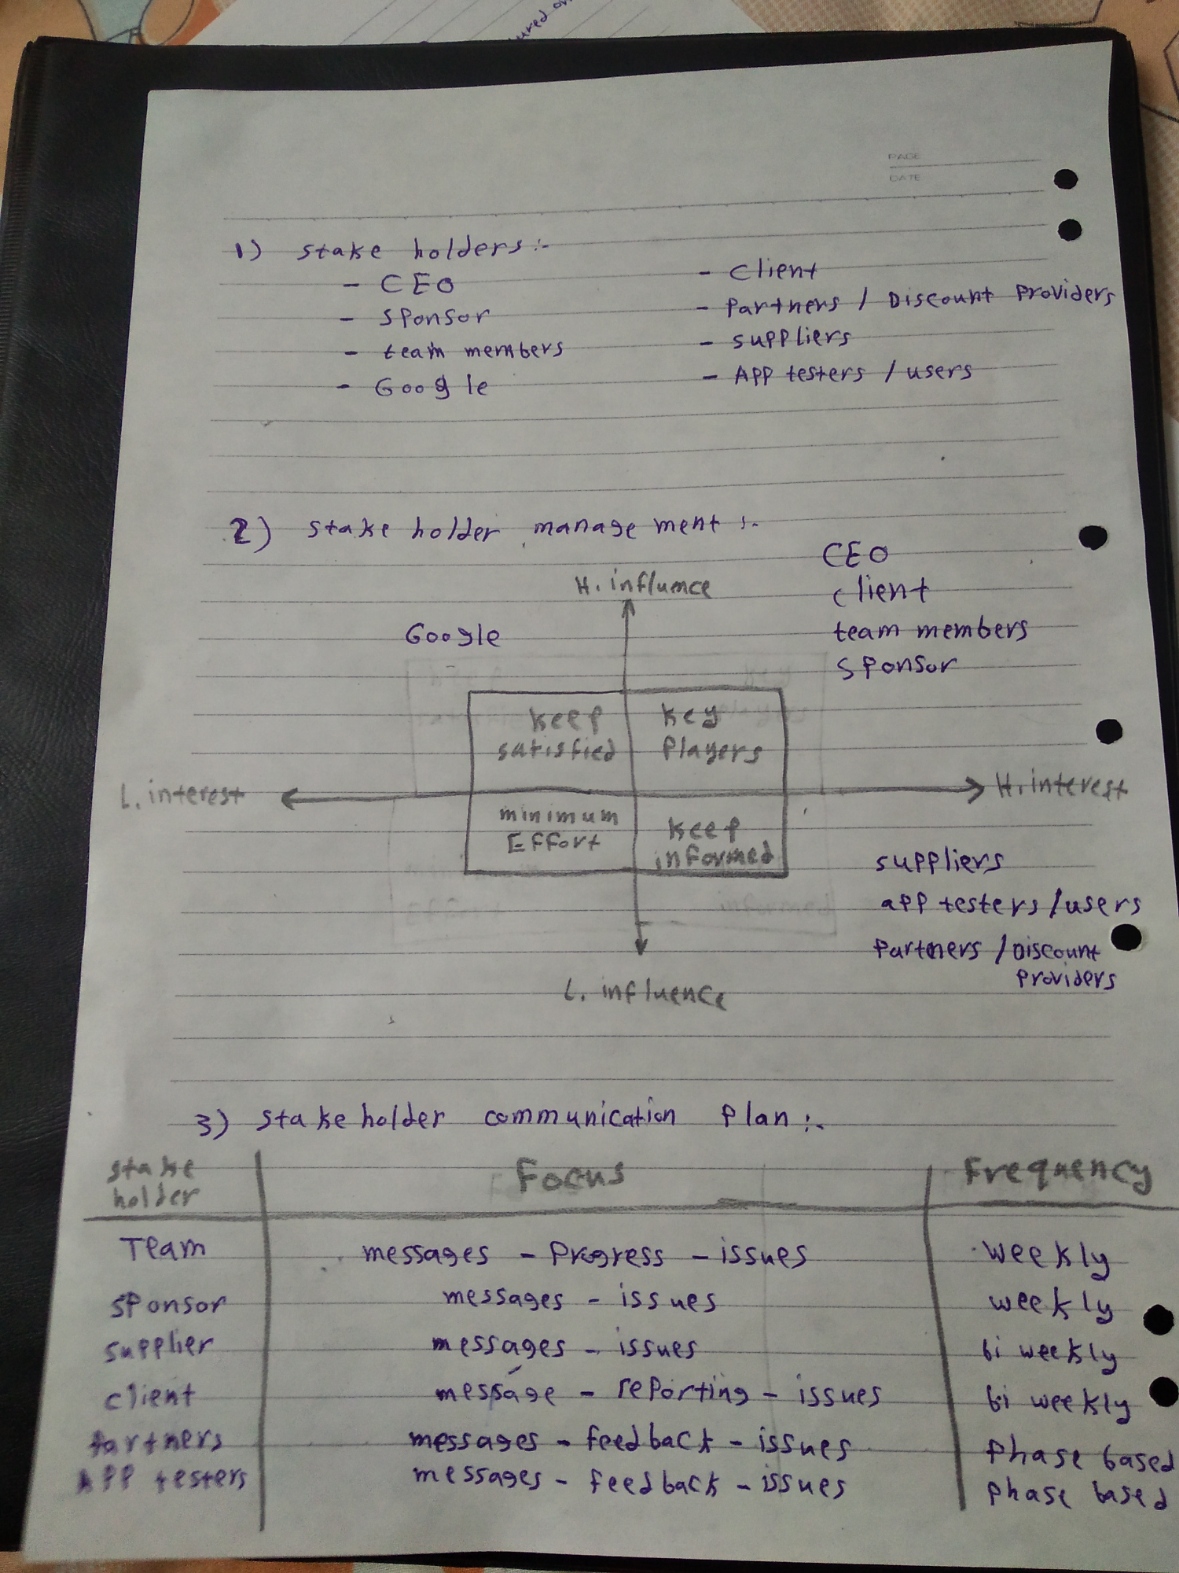 ured on
PAGE
DATE
1) stake holders:-
- CEO
- sponsor
- team members
- Google
- client
- Partners / Discount Providers
- suppliers
- APP testers / users
2) stake holder management :-
H. influence
CEO
client
team members
sponsor
Google
keep satisfied
key Players
L. interest
H. interest
minimum Effort
keep informed
suppliers
app testers / users
Partners / Discount
Providers
L. influence
3) stake holder communication Plan :-
stake holder | Focus | Frequency
Team | messages - Progress - issues | weekly
sponsor | messages - issues | weekly
supplier | messages - issues | bi weekly
client | message - reporting - issues | bi weekly
Partners | messages - feedback - issues | phase based
APP testers | messages - feedback - issues | phase based